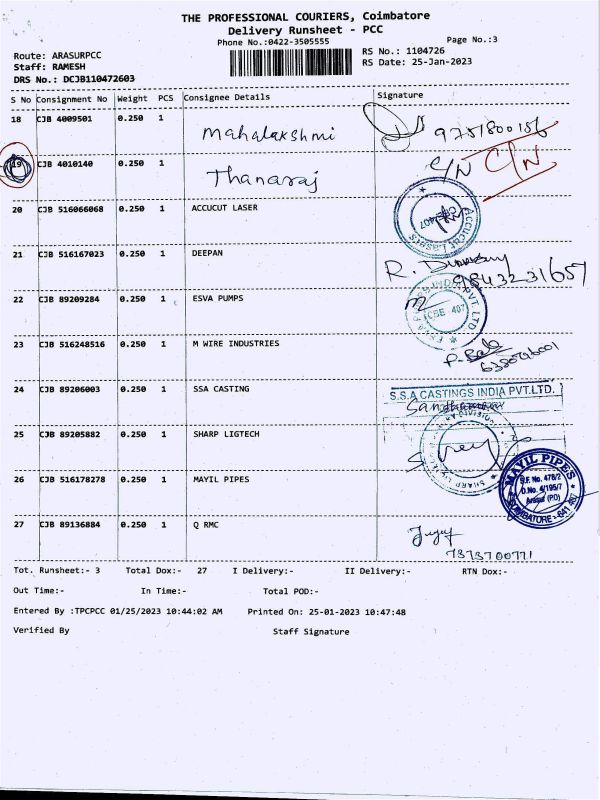 THE PROFESSIONAL COURIERS, Coimbatore
Delivery Runsheet - PCC
Phone No.:0422-3505555
Page No.:3
Route: ARASURPCC
RS No.: 1104726
Staff: RAMESH
RS Date: 25-Jan-2023
DRS No.: DCJB110472603
S No Consignment No Weight PCS Consignee Details Signature
18 CJB 4009501 0.250 1 Mahalakshmi 9751800156
19 CJB 4010140 0.250 1 Thanaraj C/N C/N
20 CJB 516066068 0.250 1 ACCUCUT LASER
Accucut Lasers
21 CJB 516167023 0.250 1 DEEPAN R. 9843231657
22 CJB 89209284 0.250 1 ESVA PUMPS
CBE 407
23 CJB 516248516 0.250 1 M WIRE INDUSTRIES
24 CJB 89206003 0.250 1 SSA CASTING
S.S.A CASTINGS INDIA PVT.LTD.
25 CJB 89205882 0.250 1 SHARP LIGTECH
26 CJB 516178278 0.250 1 MAYIL PIPES
MAYIL PIPES
S.F. No. 478/2
D.No. 4/195/7
Arasur (PO)
COIMBATORE - 641 407
27 CJB 89136884 0.250 1 Q RMC
7373700771
Tot. Runsheet:- 3 Total Dox:- 27 I Delivery:- II Delivery:- RTN Dox:-
Out Time:- In Time:- Total POD:-
Entered By :TPCPCC 01/25/2023 10:44:02 AM Printed On: 25-01-2023 10:47:48
Verified By Staff Signature